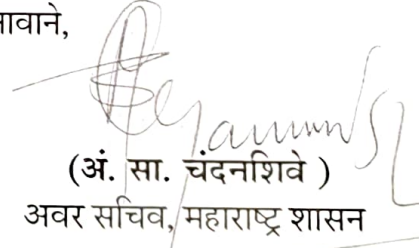 (अं. सा. चंदनशिवे )
अवर सचिव, महाराष्ट्र शासन